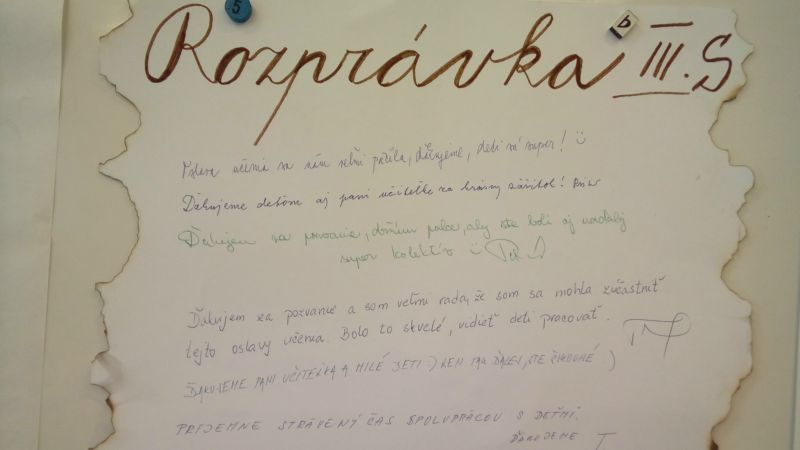 5
b
Rozprávka III.S
Oslava učenia sa nám veľmi páčila, ďakujeme, deti sú super! :)
Ďakujeme deťom aj pani učiteľke za krásny zážitok!
Ďakujem za pozvanie, držím palce, aby ste boli aj naďalej
super kolektív :)
Ďakujem za pozvanie a som veľmi rada, že som sa mohla zúčastniť
tejto oslavy učenia. Bolo to skvelé, vidieť deti pracovať.
ĎAKUJEME PANI UČITEĽKA A MILÉ DETI :) LEN TAK ĎALEJ, STE ŠIKOVNÉ :)
PRÍJEMNE STRÁVENÝ ČAS SPOLUPRÁCOU S DEŤMI.
ĎAKUJEME